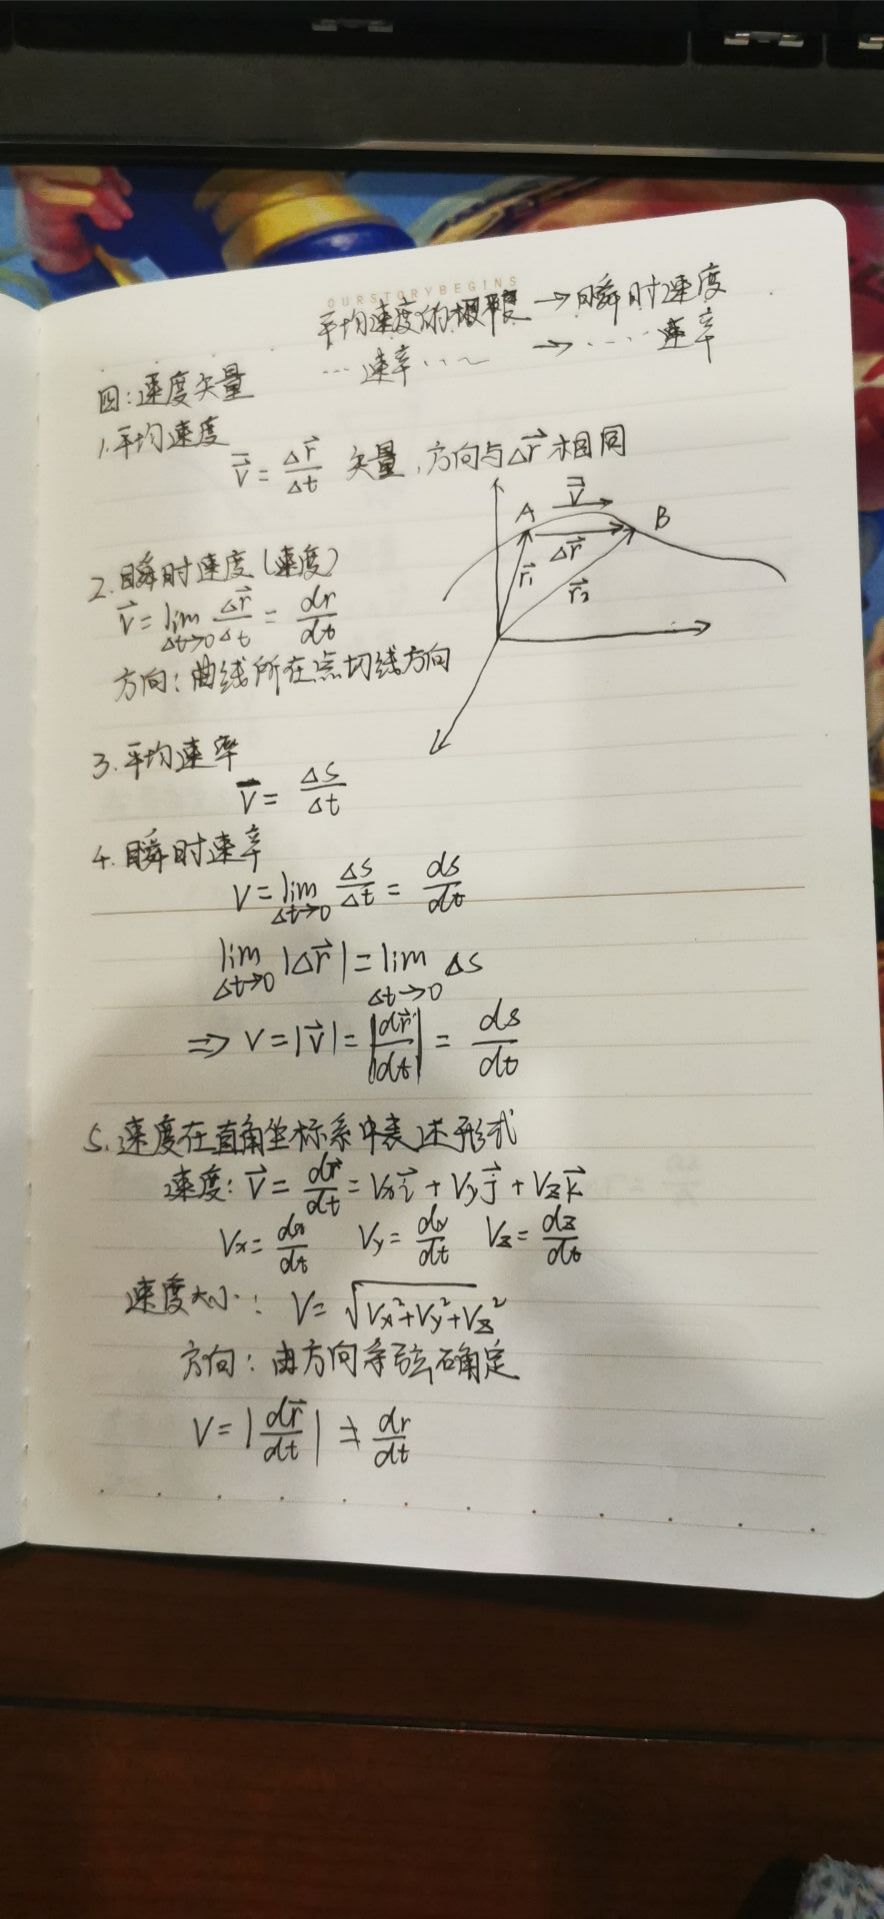 OURSTORYBEGINS
平均速度的极限 → 瞬时速度
… 速率 … → … 速率
四:速度矢量
1.平均速度
$\bar{\vec{v}} = \frac{\Delta \vec{r}}{\Delta t}$ 矢量,方向与$\Delta \vec{r}$相同
A $\bar{\vec{v}}$ B
$\Delta \vec{r}$
$\vec{r}_1$ $\vec{r}_2$
2.瞬时速度(速度)
$\vec{v} = \lim_{\Delta t \to 0} \frac{\Delta \vec{r}}{\Delta t} = \frac{dr}{dt}$
方向:曲线所在点切线方向
3.平均速率
$\bar{v} = \frac{\Delta s}{\Delta t}$
4.瞬时速率
$v = \lim_{\Delta t \to 0} \frac{\Delta s}{\Delta t} = \frac{ds}{dt}$
$\lim_{\Delta t \to 0} |\Delta \vec{r}| = \lim_{\Delta t \to 0} \Delta s$
$\Rightarrow v = |\vec{v}| = \left|\frac{d\vec{r}}{dt}\right| = \frac{ds}{dt}$
5.速度在直角坐标系中表述形式
速度: $\vec{v} = \frac{d\vec{r}}{dt} = v_x\vec{i} + v_y\vec{j} + v_z\vec{k}$
$v_x = \frac{dx}{dt}$ $v_y = \frac{dy}{dt}$ $v_z = \frac{dz}{dt}$
速度大小: $v = \sqrt{v_x^2 + v_y^2 + v_z^2}$
方向:由方向余弦确定
$v = \left|\frac{d\vec{r}}{dt}\right| \neq \frac{dr}{dt}$